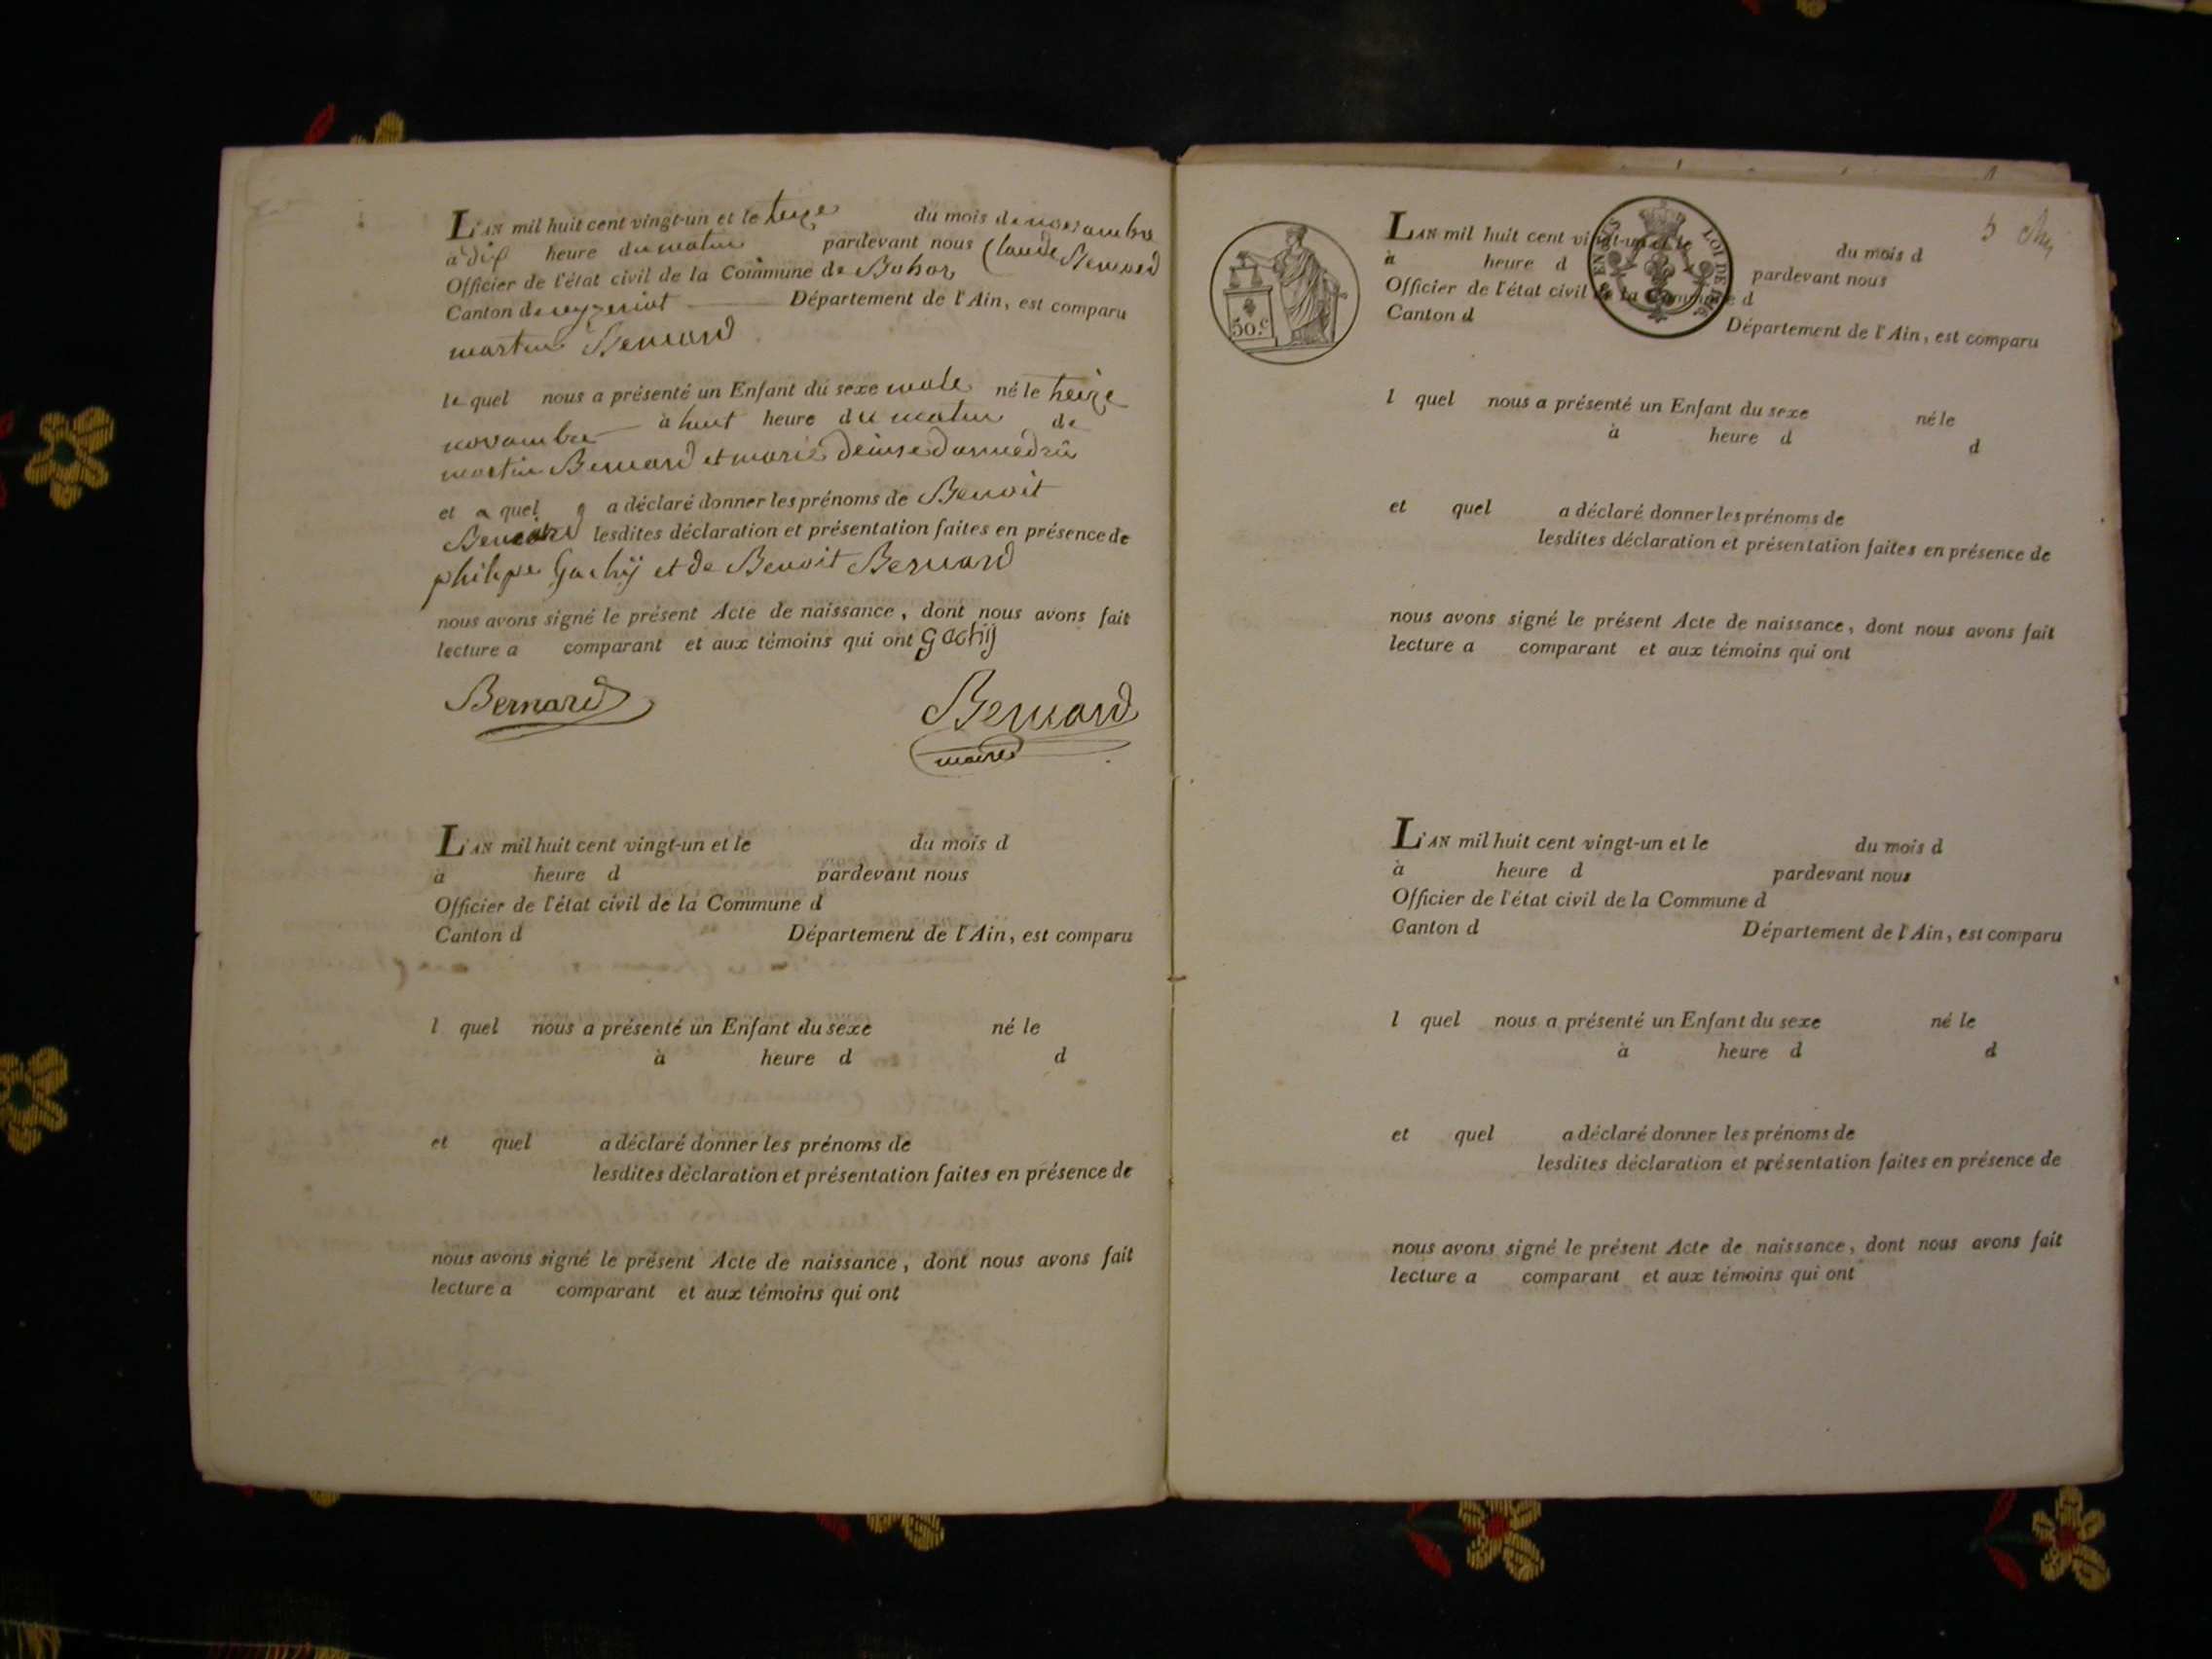 L'AN mil huit cent vingt-un et le treize du mois de novambre
à dix heure du matin pardevant nous Claude Bernard
Officier de l'état civil de la Commune de Bohas
Canton de ceyzeriat Département de l'Ain, est comparu
martin Bernard
le quel nous a présenté un Enfant du sexe male né le treize
novambre à huit heure du matin de
martin Bernard et marie
et quel a déclaré donner les prénoms de Benoit
Bernard lesdites déclaration et présentation faites en présence de
philipe Gachij et de Benoit Bernard
nous avons signé le présent Acte de naissance, dont nous avons fait
lecture a comparant et aux témoins qui ont Gachij
Bernard Bernard
maire
L'AN mil huit cent vingt-un et le du mois d
à heure d pardevant nous
Officier de l'état civil de la Commune d
Canton d Département de l'Ain, est comparu
l quel nous a présenté un Enfant du sexe né le
à heure d d
et quel a déclaré donner les prénoms de
lesdites déclaration et présentation faites en présence de
nous avons signé le présent Acte de naissance, dont nous avons fait
lecture a comparant et aux témoins qui ont
5
50.c
LOI DE 1816
L'AN mil huit cent vingt-un et le du mois d
à heure d pardevant nous
Officier de l'état civil de la Commune d
Canton d Département de l'Ain, est comparu
l quel nous a présenté un Enfant du sexe né le
à heure d d
et quel a déclaré donner les prénoms de
lesdites déclaration et présentation faites en présence de
nous avons signé le présent Acte de naissance, dont nous avons fait
lecture a comparant et aux témoins qui ont
L'AN mil huit cent vingt-un et le du mois d
à heure d pardevant nous
Officier de l'état civil de la Commune d
Canton d Département de l'Ain, est comparu
l quel nous a présenté un Enfant du sexe né le
à heure d d
et quel a déclaré donner les prénoms de
lesdites déclaration et présentation faites en présence de
nous avons signé le présent Acte de naissance, dont nous avons fait
lecture a comparant et aux témoins qui ont